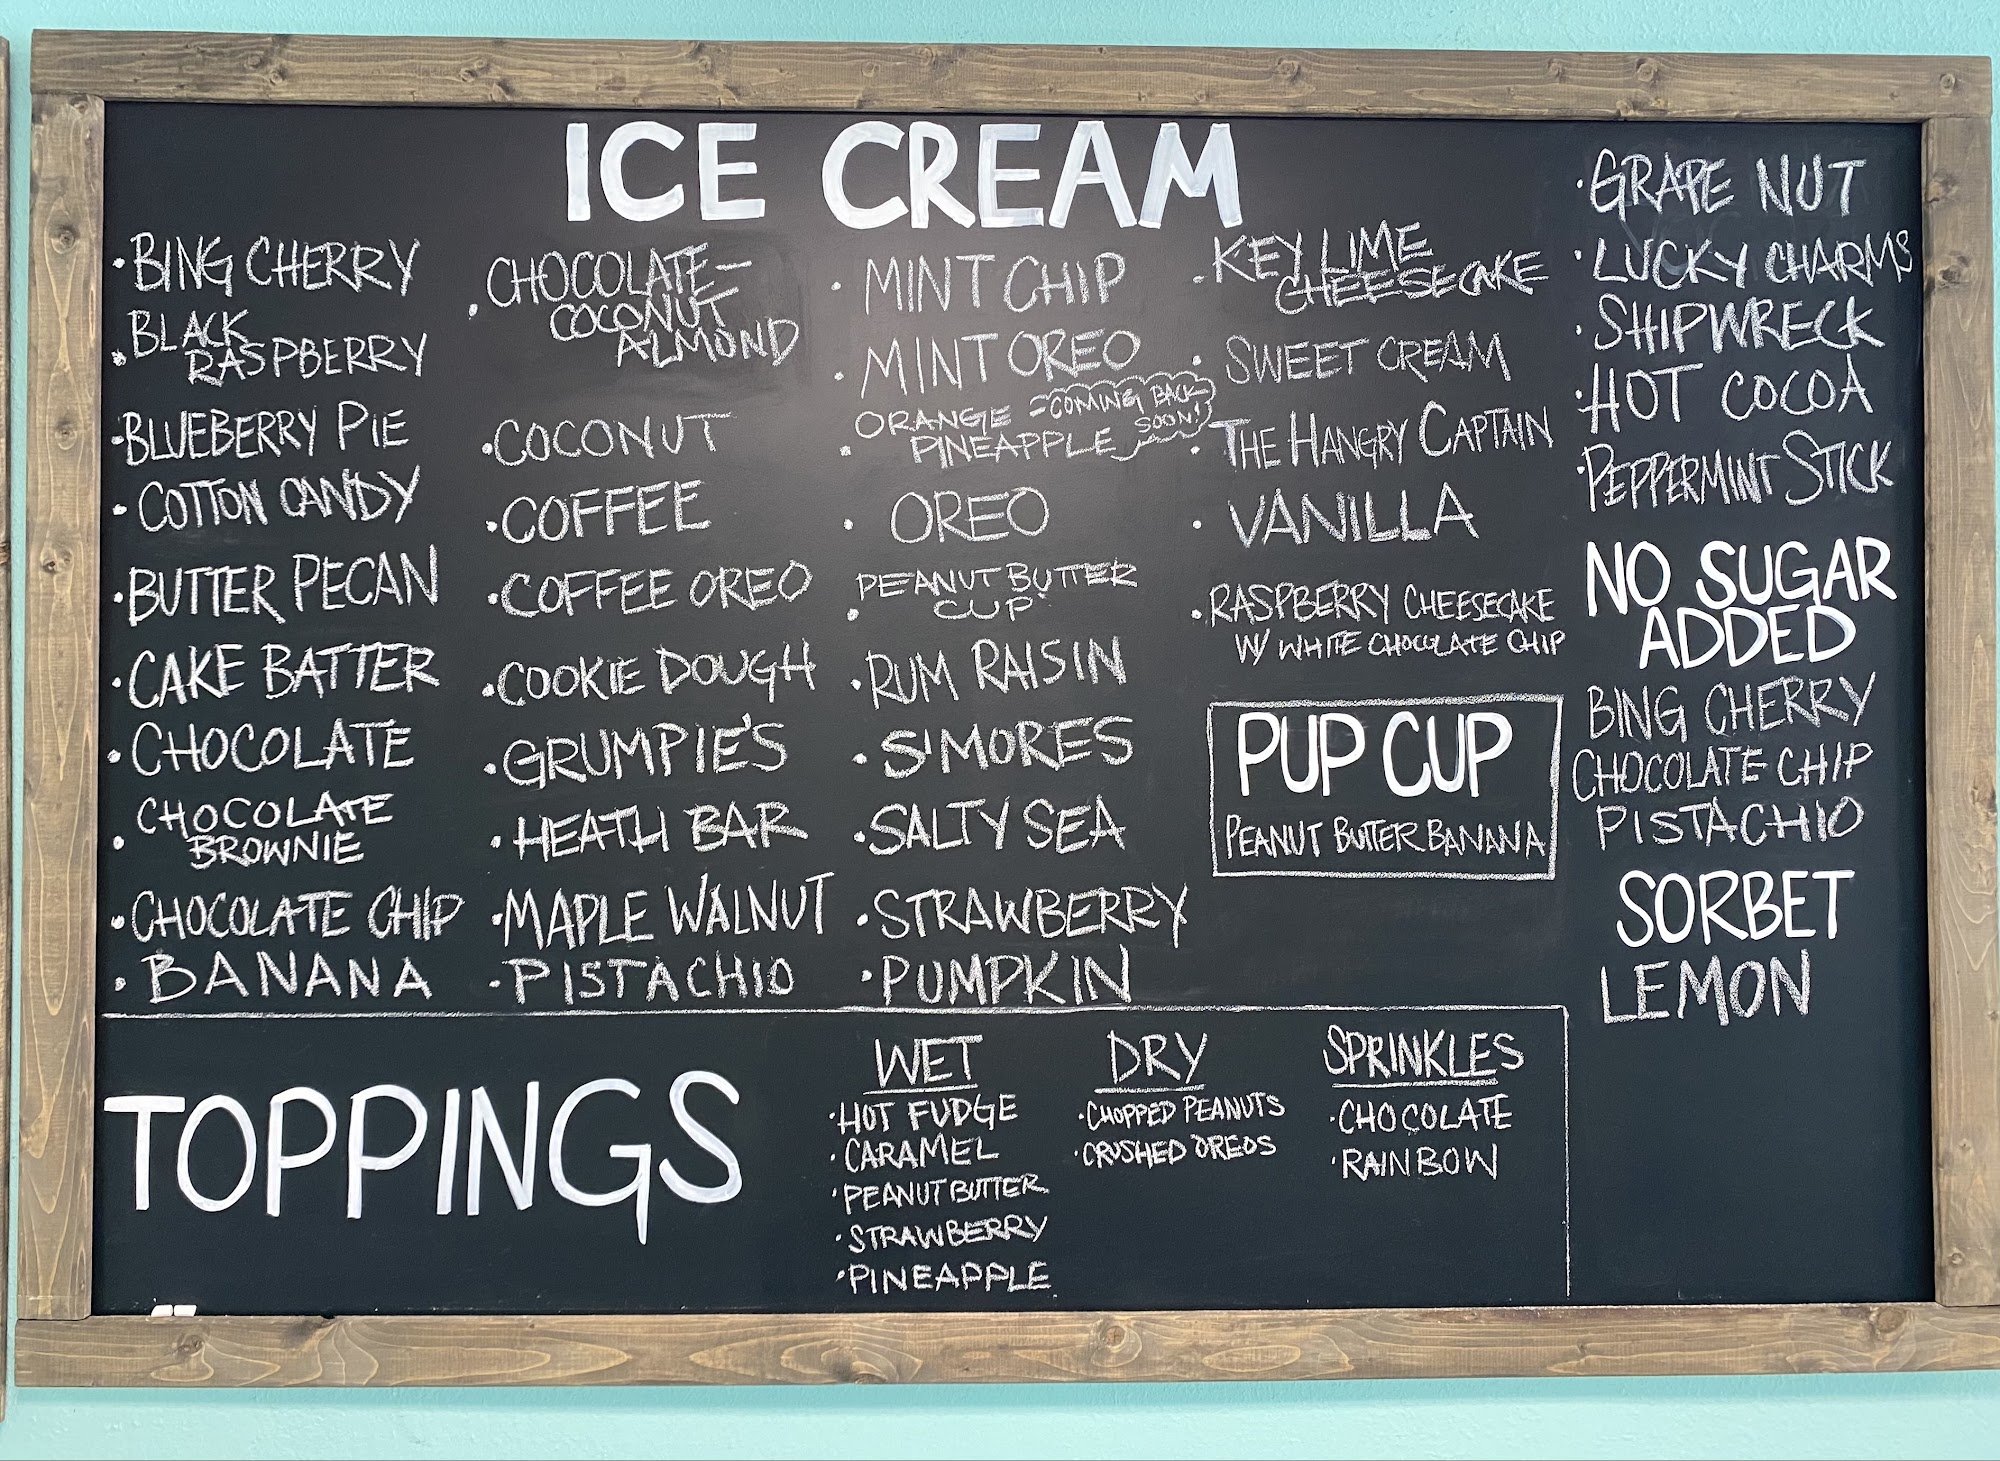 ICE CREAM
·BING CHERRY
·BLACK
RASPBERRY
·BLUEBERRY PIE
·COTTON CANDY
·BUTTER PECAN
·CAKE BATTER
·CHOCOLATE
·CHOCOLATE
BROWNIE
·CHOCOLATE CHIP
·BANANA
·CHOCOLATE-
COCONUT
ALMOND
·COCONUT
·COFFEE
·COFFEE OREO
·COOKIE DOUGH
·GRUMPIE'S
·HEATH BAR
·MAPLE WALNUT
·PISTACHIO
·MINT CHIP
·MINT OREO
·ORANGE
PINEAPPLE
=COMING BACK
SOON!
·OREO
·PEANUT BUTTER
CUP
·RUM RAISIN
·S'MORES
·SALTY SEA
·STRAWBERRY
·PUMPKIN
·KEY LIME
CHEESECAKE
·SWEET CREAM
·THE HANGRY CAPTAIN
·VANILLA
·RASPBERRY CHEESECAKE
W/ WHITE CHOCOLATE CHIP
PUP CUP
PEANUT BUTTER BANANA
·GRAPE NUT
·LUCKY CHARMS
·SHIPWRECK
·HOT COCOA
·PEPPERMINT STICK
NO SUGAR
ADDED
BING CHERRY
CHOCOLATE CHIP
PISTACHIO
SORBET
LEMON
TOPPINGS
WET
·HOT FUDGE
·CARAMEL
·PEANUT BUTTER
·STRAWBERRY
·PINEAPPLE
DRY
·CHOPPED PEANUTS
·CRUSHED OREOS
SPRINKLES
·CHOCOLATE
·RAINBOW